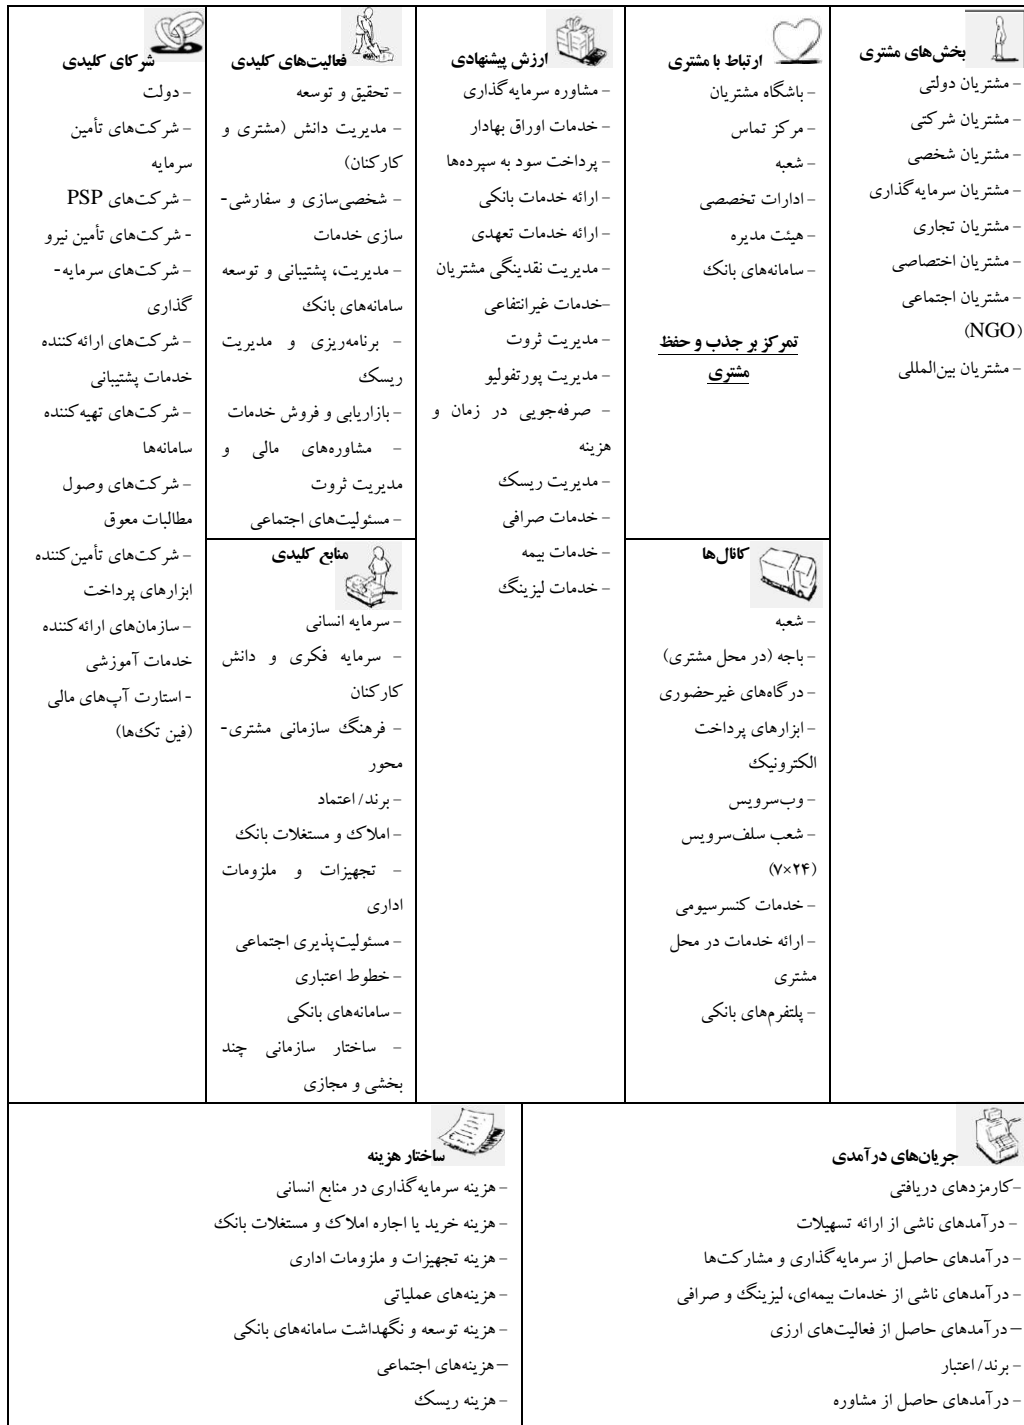 بخش‌های مشتری
- مشتریان دولتی
- مشتریان شرکتی
- مشتریان شخصی
- مشتریان سرمایه گذاری
- مشتریان تجاری
- مشتریان اختصاصی
- مشتریان اجتماعی
(NGO)
- مشتریان بین‌المللی
ارتباط با مشتری
- باشگاه مشتریان
- مرکز تماس
- شعبه
- ادارات تخصصی
- هیئت مدیره
- سامانه‌های بانک
تمرکز بر جذب و حفظ
مشتری
کانال‌ها
- شعبه
- باجه (در محل مشتری)
- درگاه‌های غیرحضوری
- ابزارهای پرداخت
الکترونیک
- وب‌سرویس
- شعب سلف‌سرویس
(۷×۲۴)
- خدمات کنسرسیومی
- ارائه خدمات در محل
مشتری
- پلتفرم‌های بانکی
ارزش پیشنهادی
- مشاوره سرمایه گذاری
- خدمات اوراق بهادار
- پرداخت سود به سپرده‌ها
- ارائه خدمات بانکی
- ارائه خدمات تعهدی
- مدیریت نقدینگی مشتریان
-خدمات غیرانتفاعی
- مدیریت ثروت
- مدیریت پورتفولیو
- صرفه‌جویی در زمان و
هزینه
- مدیریت ریسک
- خدمات صرافی
- خدمات بیمه
- خدمات لیزینگ
فعالیت‌های کلیدی
- تحقیق و توسعه
- مدیریت دانش (مشتری و
کارکنان)
- شخصی‌سازی و سفارشی-
سازی خدمات
- مدیریت، پشتیبانی و توسعه
سامانه‌های بانک
- برنامه‌ریزی و مدیریت
ریسک
- بازاریابی و فروش خدمات
- مشاوره‌های مالی و
مدیریت ثروت
- مسئولیت‌های اجتماعی
منابع کلیدی
- سرمایه انسانی
- سرمایه فکری و دانش
کارکنان
- فرهنگ سازمانی مشتری-
محور
- برند/ اعتماد
- املاک و مستغلات بانک
- تجهیزات و ملزومات
اداری
- مسئولیت‌پذیری اجتماعی
- خطوط اعتباری
- سامانه‌های بانکی
- ساختار سازمانی چند
بخشی و مجازی
شرکای کلیدی
- دولت
- شرکت‌های تأمین
سرمایه
- شرکت‌های PSP
- شرکت‌های تأمین نیرو
- شرکت‌های سرمایه-
گذاری
- شرکت‌های ارائه کننده
خدمات پشتیبانی
- شرکت‌های تهیه کننده
سامانه‌ها
- شرکت‌های وصول
مطالبات معوق
- شرکت‌های تأمین کننده
ابزارهای پرداخت
- سازمان‌های ارائه کننده
خدمات آموزشی
- استارت آپ‌های مالی
(فین تک‌ها)
جریان‌های درآمدی
-کارمزدهای دریافتی
- درآمدهای ناشی از ارائه تسهیلات
- درآمدهای حاصل از سرمایه گذاری و مشارکت‌ها
- درآمدهای ناشی از خدمات بیمه‌ای، لیزینگ و صرافی
–درآمدهای حاصل از فعالیت‌های ارزی
- برند/ اعتبار
- درآمدهای حاصل از مشاوره
ساختار هزینه
- هزینه سرمایه گذاری در منابع انسانی
- هزینه خرید یا اجاره املاک و مستغلات بانک
- هزینه تجهیزات و ملزومات اداری
- هزینه‌های عملیاتی
- هزینه توسعه و نگهداشت سامانه‌های بانکی
–هزینه‌های اجتماعی
- هزینه ریسک